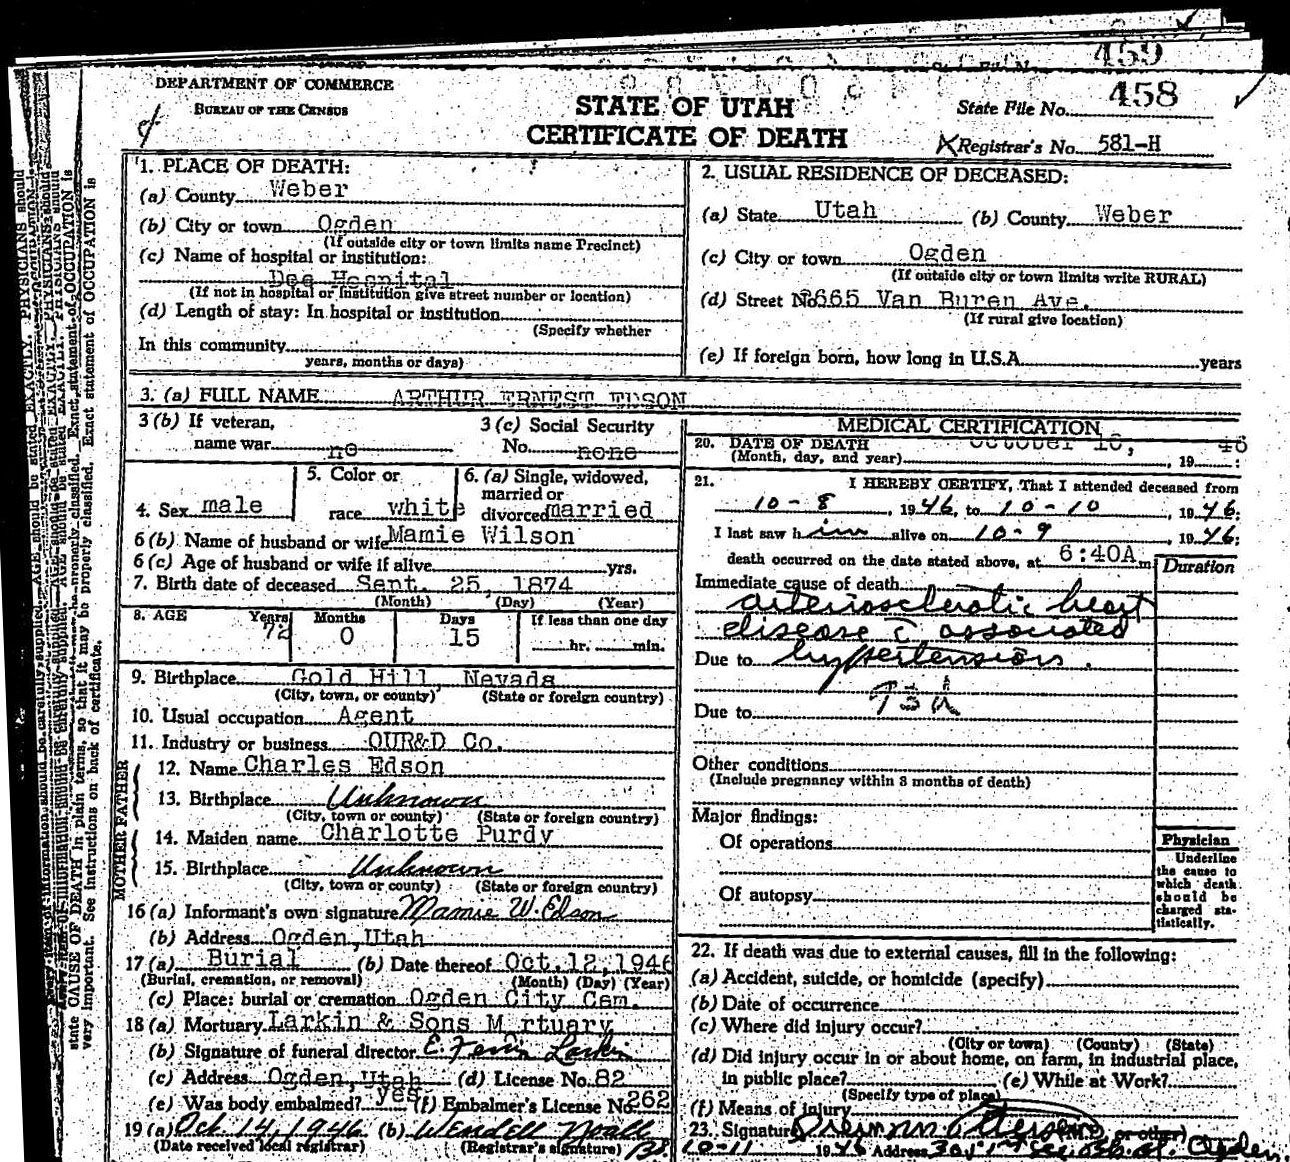 459
DEPARTMENT OF COMMERCE
BUREAU OF THE CENSUS
STATE OF UTAH
CERTIFICATE OF DEATH
State File No. 458
Registrar's No. 581-H
1. PLACE OF DEATH:
(a) County Weber
(b) City or town Ogden
(If outside city or town limits name Precinct)
(c) Name of hospital or institution:
Dee Hospital
(If not in hospital or institution give street number or location)
(d) Length of stay: In hospital or institution
(Specify whether
In this community
years, months or days)
2. USUAL RESIDENCE OF DECEASED:
(a) State Utah (b) County Weber
(c) City or town Ogden
(If outside city or town limits write RURAL)
(d) Street No. 2665 Van Buren Ave.
(If rural give location)
(e) If foreign born, how long in U.S.A. years
3. (a) FULL NAME ARTHUR ERNEST EDSON
3 (b) If veteran,
name war no
3 (c) Social Security
No. none
4. Sex male
5. Color or
race white
6. (a) Single, widowed,
married or
divorced married
6 (b) Name of husband or wife Mamie Wilson
6 (c) Age of husband or wife if alive yrs.
7. Birth date of deceased Sept. 25, 1874
(Month) (Day) (Year)
8. AGE Years Months Days If less than one day
72 0 15 hr. min.
9. Birthplace Gold Hill, Nevada
(City, town, or county) (State or foreign country)
10. Usual occupation Agent
11. Industry or business OUR&D Co.
FATHER
12. Name Charles Edson
13. Birthplace Unknown
(City, town or county) (State or foreign country)
MOTHER
14. Maiden name Charlotte Purdy
15. Birthplace Unknown
(City, town or county) (State or foreign country)
16 (a) Informant's own signature Mamie W. Edson
(b) Address Ogden, Utah
17 (a) Burial (b) Date thereof Oct. 12, 1946
(Burial, cremation, or removal) (Month) (Day) (Year)
(c) Place: burial or cremation Ogden City Cem.
18 (a) Mortuary Larkin & Sons M rtuary
(b) Signature of funeral director E. Larkin
(c) Address Ogden, Utah (d) License No. 82
(e) Was body embalmed? yes (f) Embalmer's License No. 262
19 (a) Oct. 14, 1946 (b) Wendell Noall
(Date received local registrar) (Registrar's signature)
MEDICAL CERTIFICATION
20. DATE OF DEATH October 10, 46
(Month, day, and year) , 19 :
21. I HEREBY CERTIFY, That I attended deceased from
10-8, 1946, to 10-10, 1946;
I last saw him alive on 10-9, 1946;
death occurred on the date stated above, at 6:40A m
Duration
Immediate cause of death
arteriosclerotic heart
disease c̄ associated
Due to hypertension.
Due to
Other conditions
(Include pregnancy within 3 months of death)
Major findings:
Of operations
Of autopsy
Physician
Underline
the cause to
which death
should be
charged sta-
tistically.
22. If death was due to external causes, fill in the following:
(a) Accident, suicide, or homicide (specify)
(b) Date of occurrence
(c) Where did injury occur?
(City or town) (County) (State)
(d) Did injury occur in or about home, on farm, in industrial place,
in public place? (e) While at Work?
(Specify type of place)
(f) Means of injury
23. Signature or other)
10-11 1946 Address Ogden
state CAUSE OF DEATH in plain terms, so that it may be properly classified. Exact statement of OCCUPATION is
very important. See instructions on back of certificate.